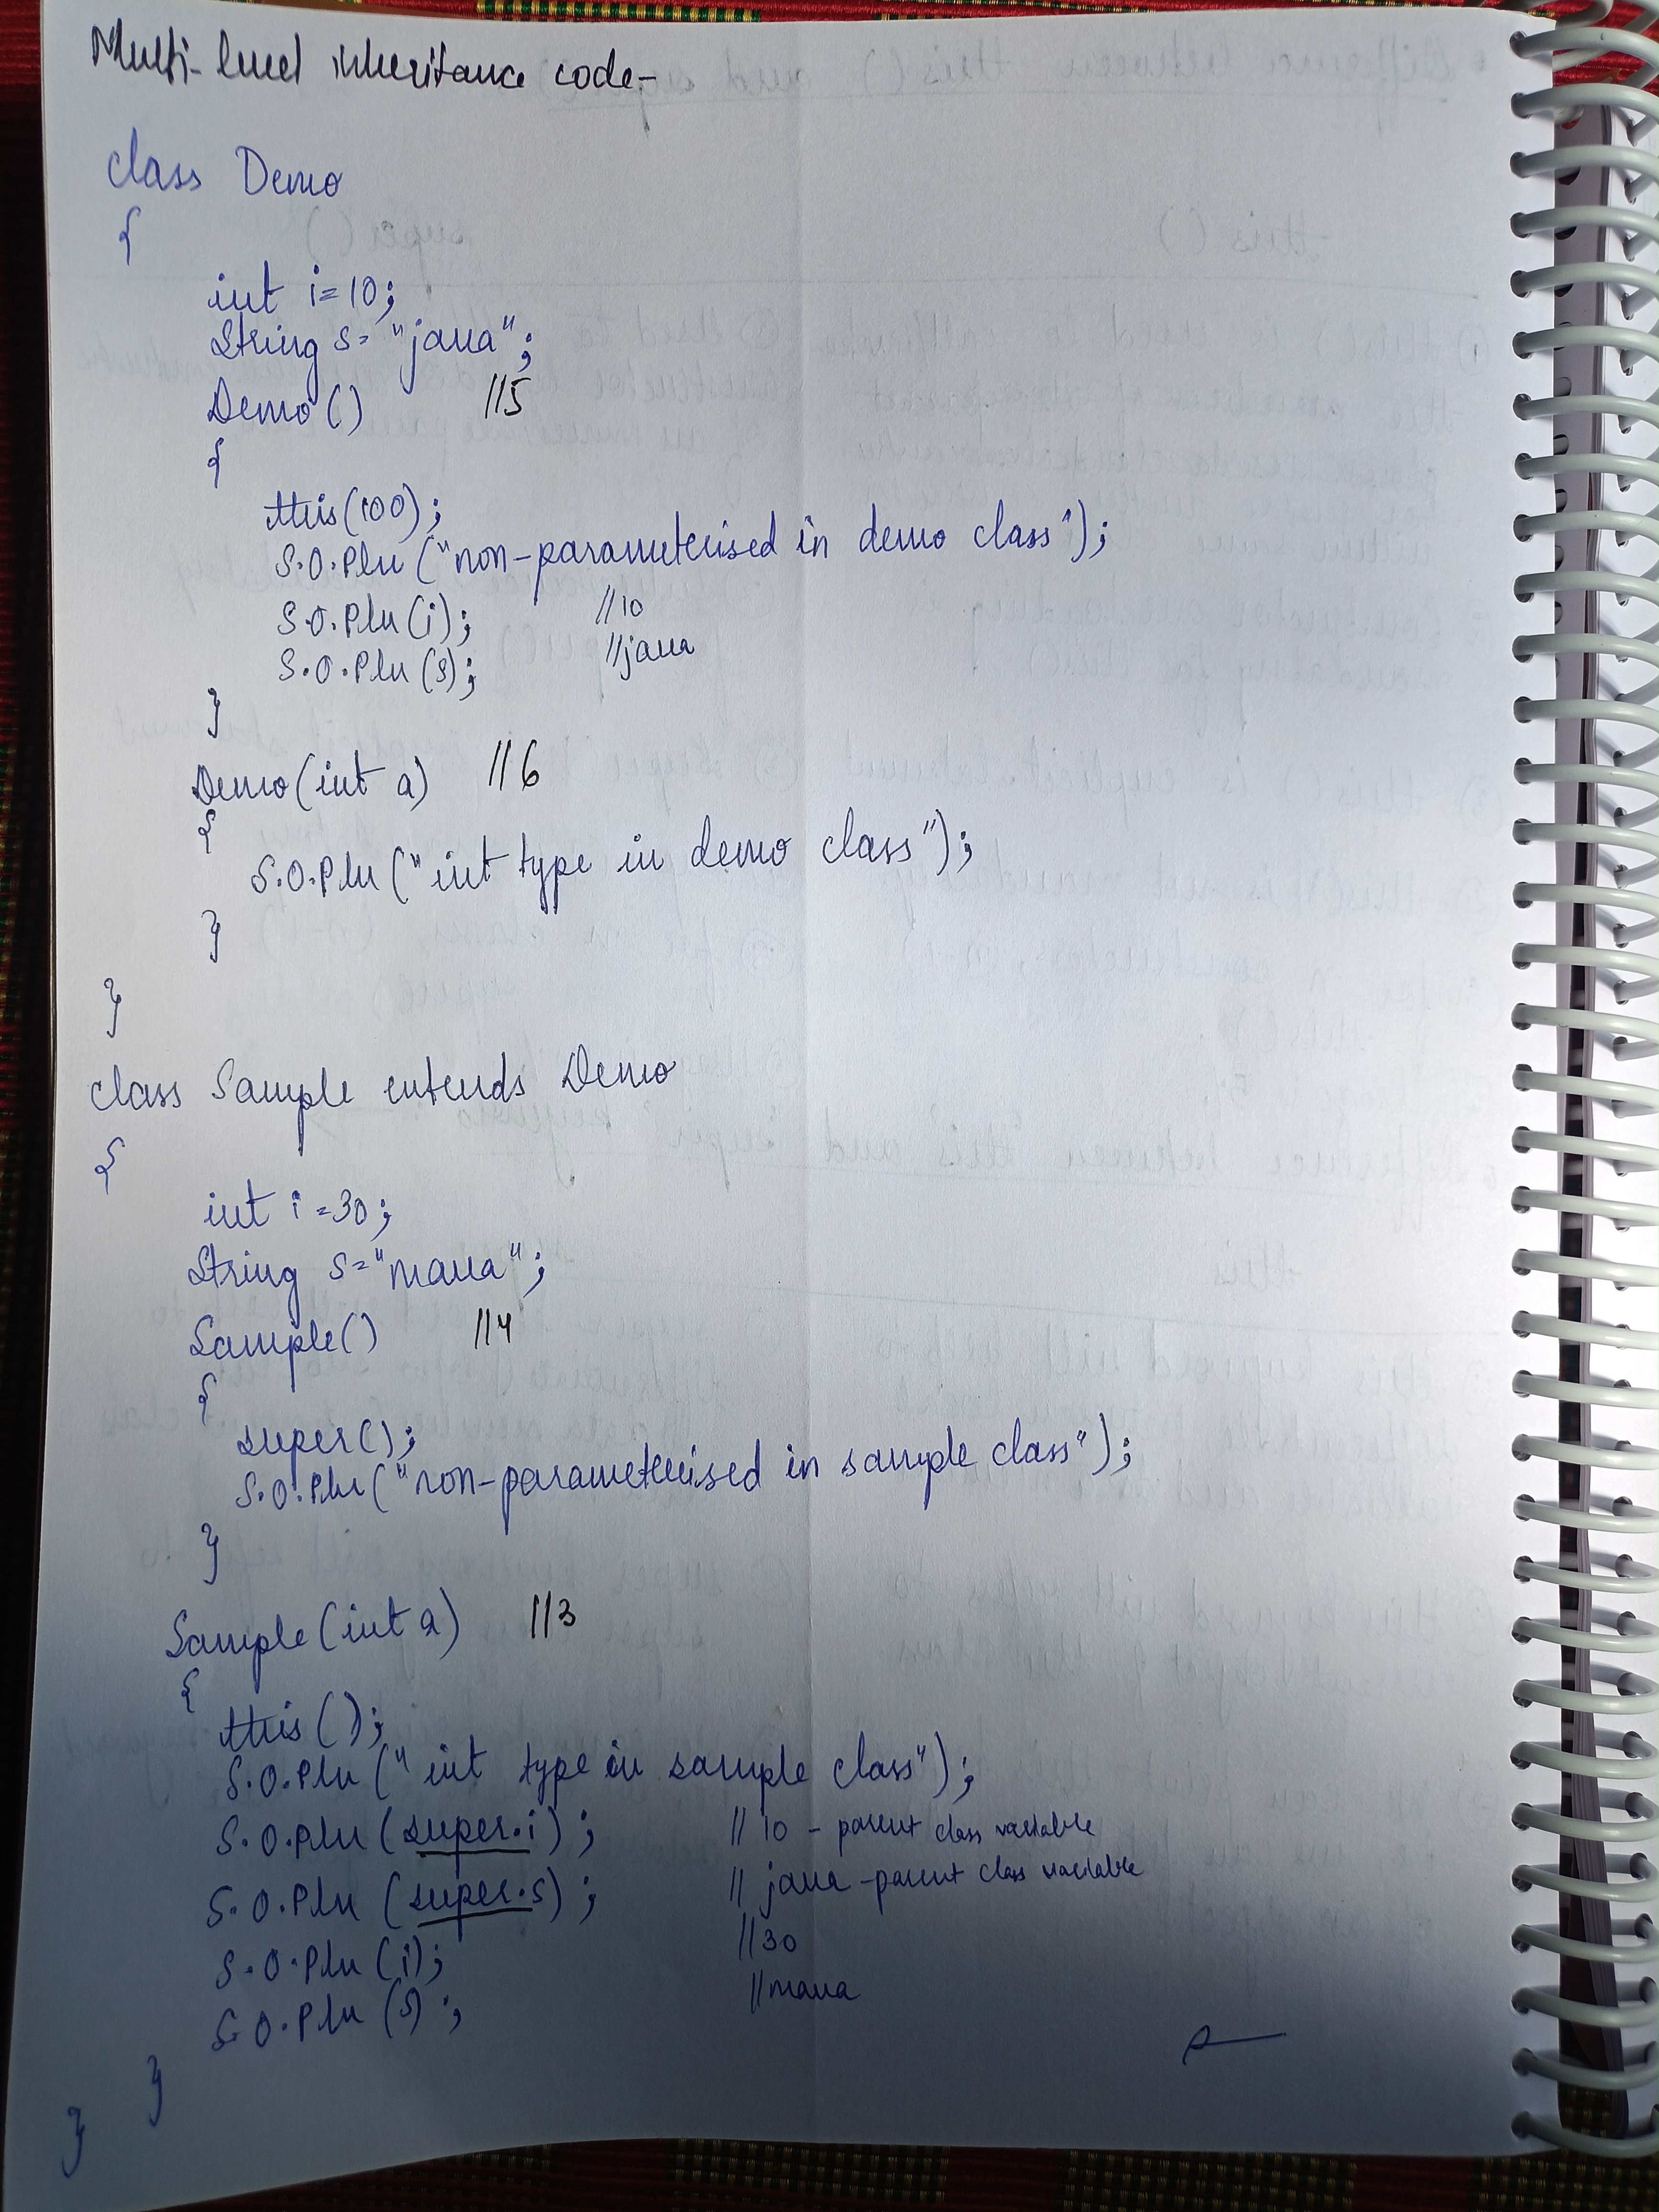 Multi-level inheritance code-
class Demo
{
int i=10;
String s= "java";
Demo() //5
{
this(100);
S.O.Pln ("non-parameterised in demo class");
S.O.Pln(i); //10
S.O.Pln(s); //java
}
Demo(int a) //6
{
S.O.Pln("int type in demo class");
}
}
class Sample extends Demo
{
int i=30;
String s="mava";
Sample() //4
{
super();
S.O.Pln("non-parameterised in sample class");
}
Sample(int a) //3
{
this();
S.O.Pln("int type in sample class");
S.O.Pln(super.i); //10 - parent class variable
S.O.Pln(super.s); //java - parent class variable
S.O.Pln(i); //30
S.O.Pln(s); //mava
}
}